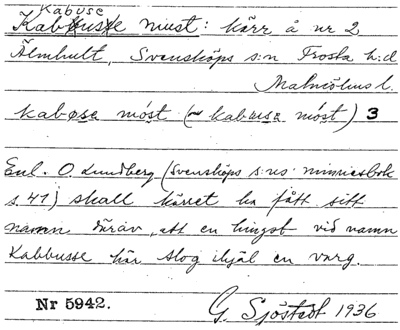 Kabuse
Kabbusse must: kärr å nr 2
Älmhult, Svensköps s:n Frosta h:d
Malmöhus l.
kabøse móst (~ kabuse móst) 3
Enl. O. Lundberg (Svensköps s:ns minnesbok
s. 41) skall kärret ha fått sitt
namn därav, att en hingst vid namn
Kabbusse här slog ihjäl en varg.
Nr 5942. G. Sjöstedt 1936